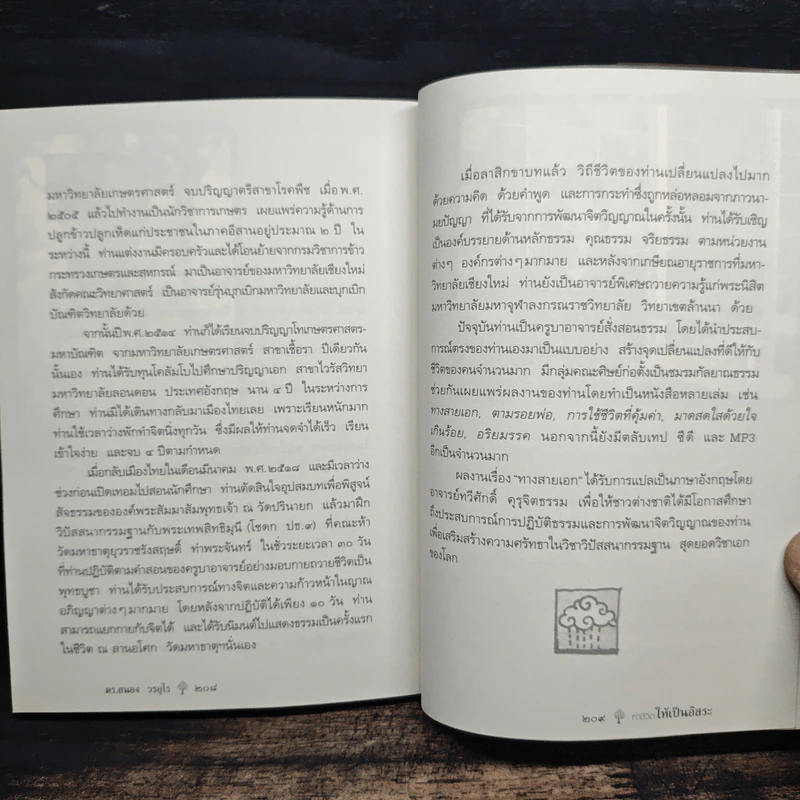 มหาวิทยาลัยเกษตรศาสตร์ จบปริญญาตรีสาขาโรคพืช เมื่อ พ.ศ.
๒๕๐๕ แล้วไปทำงานเป็นนักวิชาการเกษตร เผยแพร่ความรู้ด้านการ
ปลูกข้าวปลูกเห็ดแก่ประชาชนในภาคอีสานอยู่ประมาณ ๒ ปี ใน
ระหว่างนี้ ท่านแต่งงานมีครอบครัวและได้โอนย้ายจากกรมวิชาการข้าว
กระทรวงเกษตรและสหกรณ์ มาเป็นอาจารย์ของมหาวิทยาลัยเชียงใหม่
สังกัดคณะวิทยาศาสตร์ เป็นอาจารย์รุ่นบุกเบิกมหาวิทยาลัยและบุกเบิก
บัณฑิตวิทยาลัยด้วย
จากนั้นปีพ.ศ.๒๕๑๔ ท่านก็ได้เรียนจบปริญญาโทเกษตรศาสตร-
มหาบัณฑิต จากมหาวิทยาลัยเกษตรศาสตร์ สาขาเชื้อรา ปีเดียวกัน
นั้นเอง ท่านได้รับทุนโคลัมโบไปศึกษาปริญญาเอก สาขาไวรัสวิทยา
มหาวิทยาลัยลอนดอน ประเทศอังกฤษ นาน ๔ ปี ในระหว่างการ
ศึกษา ท่านมิได้เดินทางกลับมาเมืองไทยเลย เพราะเรียนหนักมาก
ท่านใช้เวลาว่างพักทำจิตนิ่งทุกวัน ซึ่งมีผลให้ท่านจดจำได้เร็ว เรียน
เข้าใจง่าย และจบ ๔ ปีตามกำหนด
เมื่อกลับมาเมืองไทยในเดือนมีนาคม พ.ศ.๒๕๑๘ และมีเวลาว่าง
ช่วงก่อนเปิดเทอมไปสอนนักศึกษา ท่านตัดสินใจอุปสมบทเพื่อพิสูจน์
สัจธรรมขององค์พระสัมมาสัมพุทธเจ้า ณ วัดปรินายก แล้วมาฝึก
วิปัสสนากรรมฐานกับพระเทพสิทธิมุนี (โชดก ปธ.๙) ที่คณะห้า
วัดมหาธาตุยุวราชรังสฤษดิ์ ท่าพระจันทร์ ในชั่วระยะเวลา ๓๐ วัน
ที่ท่านปฏิบัติตามคำสอนของครูบาอาจารย์อย่างมอบกายถวายชีวิตเป็น
พุทธบูชา ท่านได้รับประสบการณ์ทางจิตและความก้าวหน้าในญาณ
อภิญญาต่างๆมากมาย โดยหลังจากปฏิบัติได้เพียง ๑๐ วัน ท่าน
สามารถแยกกายกับจิตได้ และได้รับนิมนต์ไปแสดงธรรมเป็นครั้งแรก
ในชีวิต ณ ลานอโศก วัดมหาธาตุฯนั่นเอง
ดร.สนอง วรอุไร ๒๐๘
เมื่อลาสิกขาบทแล้ว วิถีชีวิตของท่านเปลี่ยนแปลงไปมาก
ด้วยความคิด ด้วยคำพูด และการกระทำซึ่งถูกหล่อหลอมจากภาวนา-
มยปัญญา ที่ได้รับจากการพัฒนาจิตวิญญาณในครั้งนั้น ท่านได้รับเชิญ
เป็นองค์บรรยายด้านหลักธรรม คุณธรรม จริยธรรม ตามหน่วยงาน
ต่างๆ องค์กรต่างๆมากมาย และหลังจากเกษียณอายุราชการที่มหา-
วิทยาลัยเชียงใหม่ ท่านยังเป็นอาจารย์พิเศษถวายความรู้แก่พระนิสิต
มหาวิทยาลัยมหาจุฬาลงกรณราชวิทยาลัย วิทยาเขตล้านนา ด้วย
ปัจจุบันท่านเป็นครูบาอาจารย์สั่งสอนธรรม โดยได้นำประสบ-
การณ์ตรงของท่านเองมาเป็นแบบอย่าง สร้างจุดเปลี่ยนแปลงที่ดีให้กับ
ชีวิตของคนจำนวนมาก มีกลุ่มคณะศิษย์ก่อตั้งเป็นชมรมกัลยาณธรรม
ช่วยกันเผยแพร่ผลงานของท่านโดยทำเป็นหนังสือหลายเล่ม เช่น
ทางสายเอก, ตามรอยพ่อ, การใช้ชีวิตที่คุ้มค่า, มาดสดใสด้วยใจ
เกินร้อย, อริยมรรค นอกจากนี้ยังมีตลับเทป ซีดี และ MP3
อีกเป็นจำนวนมาก
ผลงานเรื่อง "ทางสายเอก" ได้รับการแปลเป็นภาษาอังกฤษโดย
อาจารย์ทวีศักดิ์ คุรุจิตธรรม เพื่อให้ชาวต่างชาติได้มีโอกาสศึกษา
ถึงประสบการณ์การปฏิบัติธรรมและการพัฒนาจิตวิญญาณของท่าน
เพื่อเสริมสร้างความศรัทธาในวิชาวิปัสสนากรรมฐาน สุดยอดวิชาเอก
ของโลก
๒๐๙ ทำชีวิตให้เป็นอิสระ